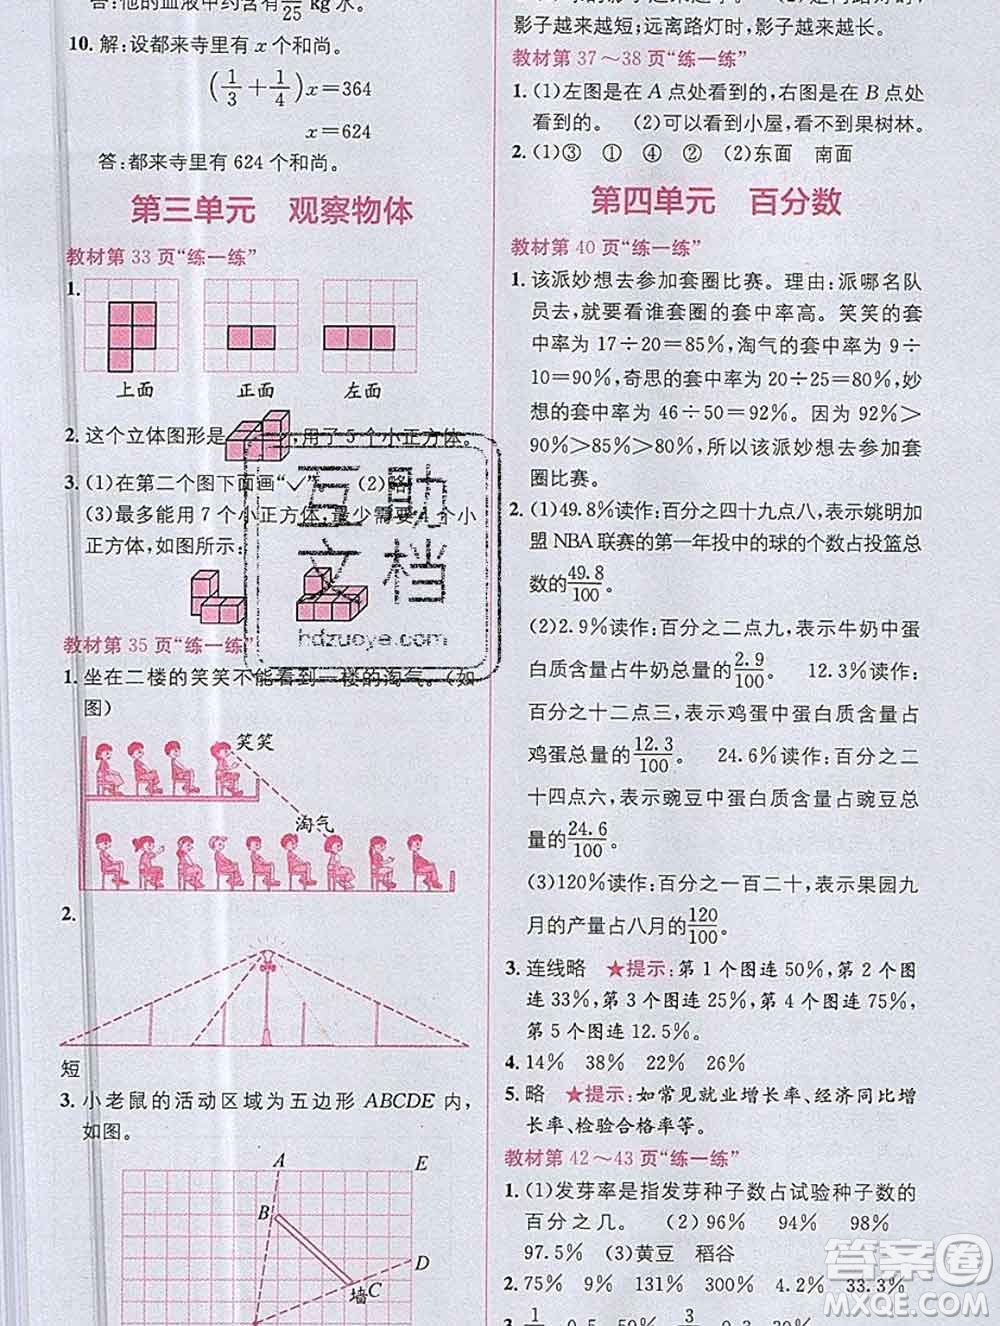 答：他的血液中约含有 9/25 kg 水。
10. 解：设都来寺里有 x 个和尚。
(1/3＋1/4)x＝364
x＝624
答：都来寺里有 624 个和尚。
第三单元 观察物体
教材第 33 页“练一练”
1.
上面 正面 左面
2. 这个立体图形是 ，用了 5 个小正方体。
3. (1)在第二个图下面画“✓” (2)略
(3)最多能用 7 个小正方体，最少需要 个小
正方体，如图所示：
教材第 35 页“练一练”
1. 坐在二楼的笑笑不能看到一楼的淘气。(如
图)
笑笑
淘气
2.
短
3. 小老鼠的活动区域为五边形 ABCDE 内，
如图。
A E
B
D
墙 C
影子越来越短；远离路灯时，影子越来越长。
教材第 37～38 页“练一练”
1. (1)左图是在 A 点处看到的，右图是在 B 点处
看到的。 (2)可以看到小屋，看不到果树林。
2. (1)③ ① ④ ② (2)东面 南面
第四单元 百分数
教材第 40 页“练一练”
1. 该派妙想去参加套圈比赛。理由：派哪名队
员去，就要看谁套圈的套中率高。笑笑的套
中率为 17÷20＝85%，淘气的套中率为 9÷
10＝90%，奇思的套中率为 80%，妙
想的套中率为 46÷50＝92%。因为 92%＞
90%＞85%＞80%，所以该派妙想去参加套
圈比赛。
2. (1)49.8%读作：百分之四十九点八，表示姚明加
盟 NBA 联赛的第一年投中的球的个数占投篮总
数的 49.8/100
(2)2.9%读作：百分之二点九，表示牛奶中蛋
白质含量占牛奶总量的 2.9/100 12.3%读作：
百分之十二点三，表示鸡蛋中蛋白质含量占
鸡蛋总量的 12.3/100 24.6%读作：百分之二
十四点六，表示豌豆中蛋白质含量占豌豆总
量的 24.6/100
(3)120%读作：百分之一百二十，表示果园九
月的产量占八月的 120/100
3. 连线略 ★提示：第 1 个图连 50%，第 2 个图
连 33%，第 3 个图连 25%，第 4 个图连 75%，
第 5 个图连 12.5%。
4. 14% 38% 22% 26%
5. 略 ★提示：如常见就业增长率、经济同比增
长率、检验合格率等。
教材第 42～43 页“练一练”
1. (1)发芽率是指发芽种子数占试验种子数的
百分之几。 (2)96% 94% 98%
97.5% (3)黄豆 稻谷
2. 75% 9% 131% 300% 4.2% 33.3%
互助
文档
hdzuoye.com
答案圈
MXQE.COM